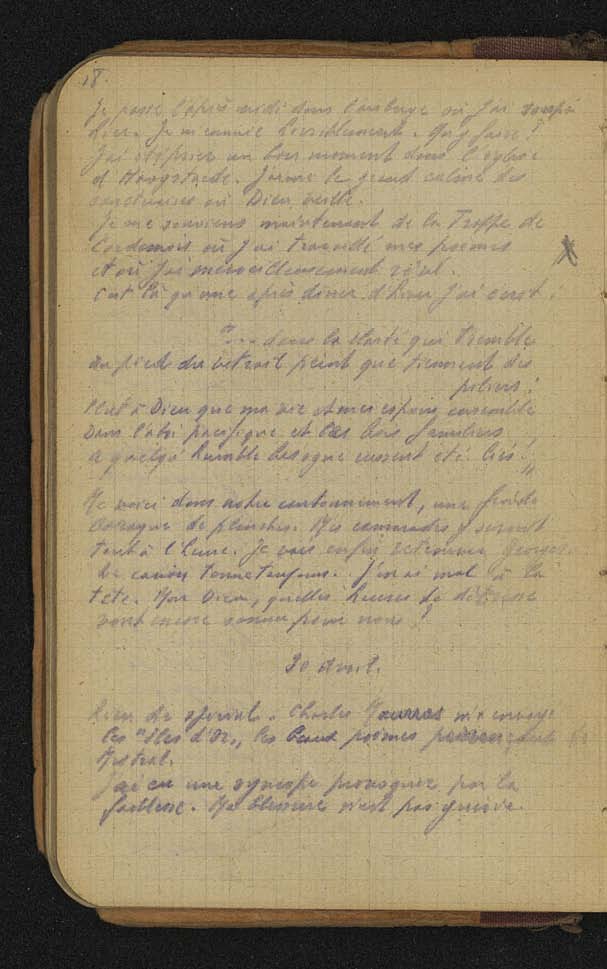 18.
Je passe l'après midi dans l'auberge où j'ai soupé
hier. Je m'ennuie terriblement. Qu'y faire !
J'ai été prier un bon moment dans l'église
d'Hoogstaede. J'aime le grand calme des
sanctuaires où Dieu veille.
Je me souviens maintenant de la Trappe de
Cordemois où j'ai travaillé mes poèmes
et où j'ai merveilleusement rêvé.
C'est là qu'une après diner d'hiver j'ai écrit :
"... dans la clarté qui tremble
Au pied du retrait peint que tiennent des
piliers ;
Plut à Dieu que ma vie et mes espoirs ensemble
Dans l'abri pacifique et les bois familiers
A quelqu'humble besogne eussent été liés !"
Me voici dans notre cantonnement, une froide
baraque de planches. Mes camarades y seront
tout à l'heure. Je vais enfin retrouver Georges.
Le canon tonne toujours. J'ai mal à la
tête. Mon Dieu, quelles heures de détresse
vont encore sonner pour nous !
30 Avril.
Rien de spécial. Charles Maurras m'a envoyé
les "Iles d'Or", les beaux poèmes de
Mistral.
J'ai eu une syncope provoquée par la
faiblesse. Ma blessure n'est pas guérie.